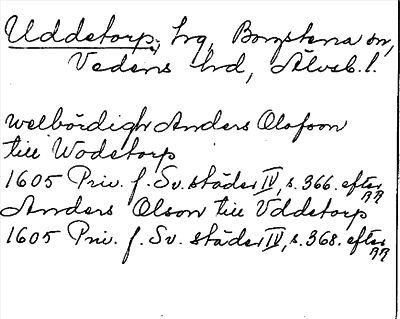 Uddetorp, hg, Borgstena sn,
Vedens hd, Älvsb. l.
welbördigh Anders Olofson
till Wddetorp
1605 Priv. f. Sv. städer IV, s. 366. efter RR
Anders Olson till Vddetorp
1605 Priv. f. Sv. städer IV, s. 368. efter RR